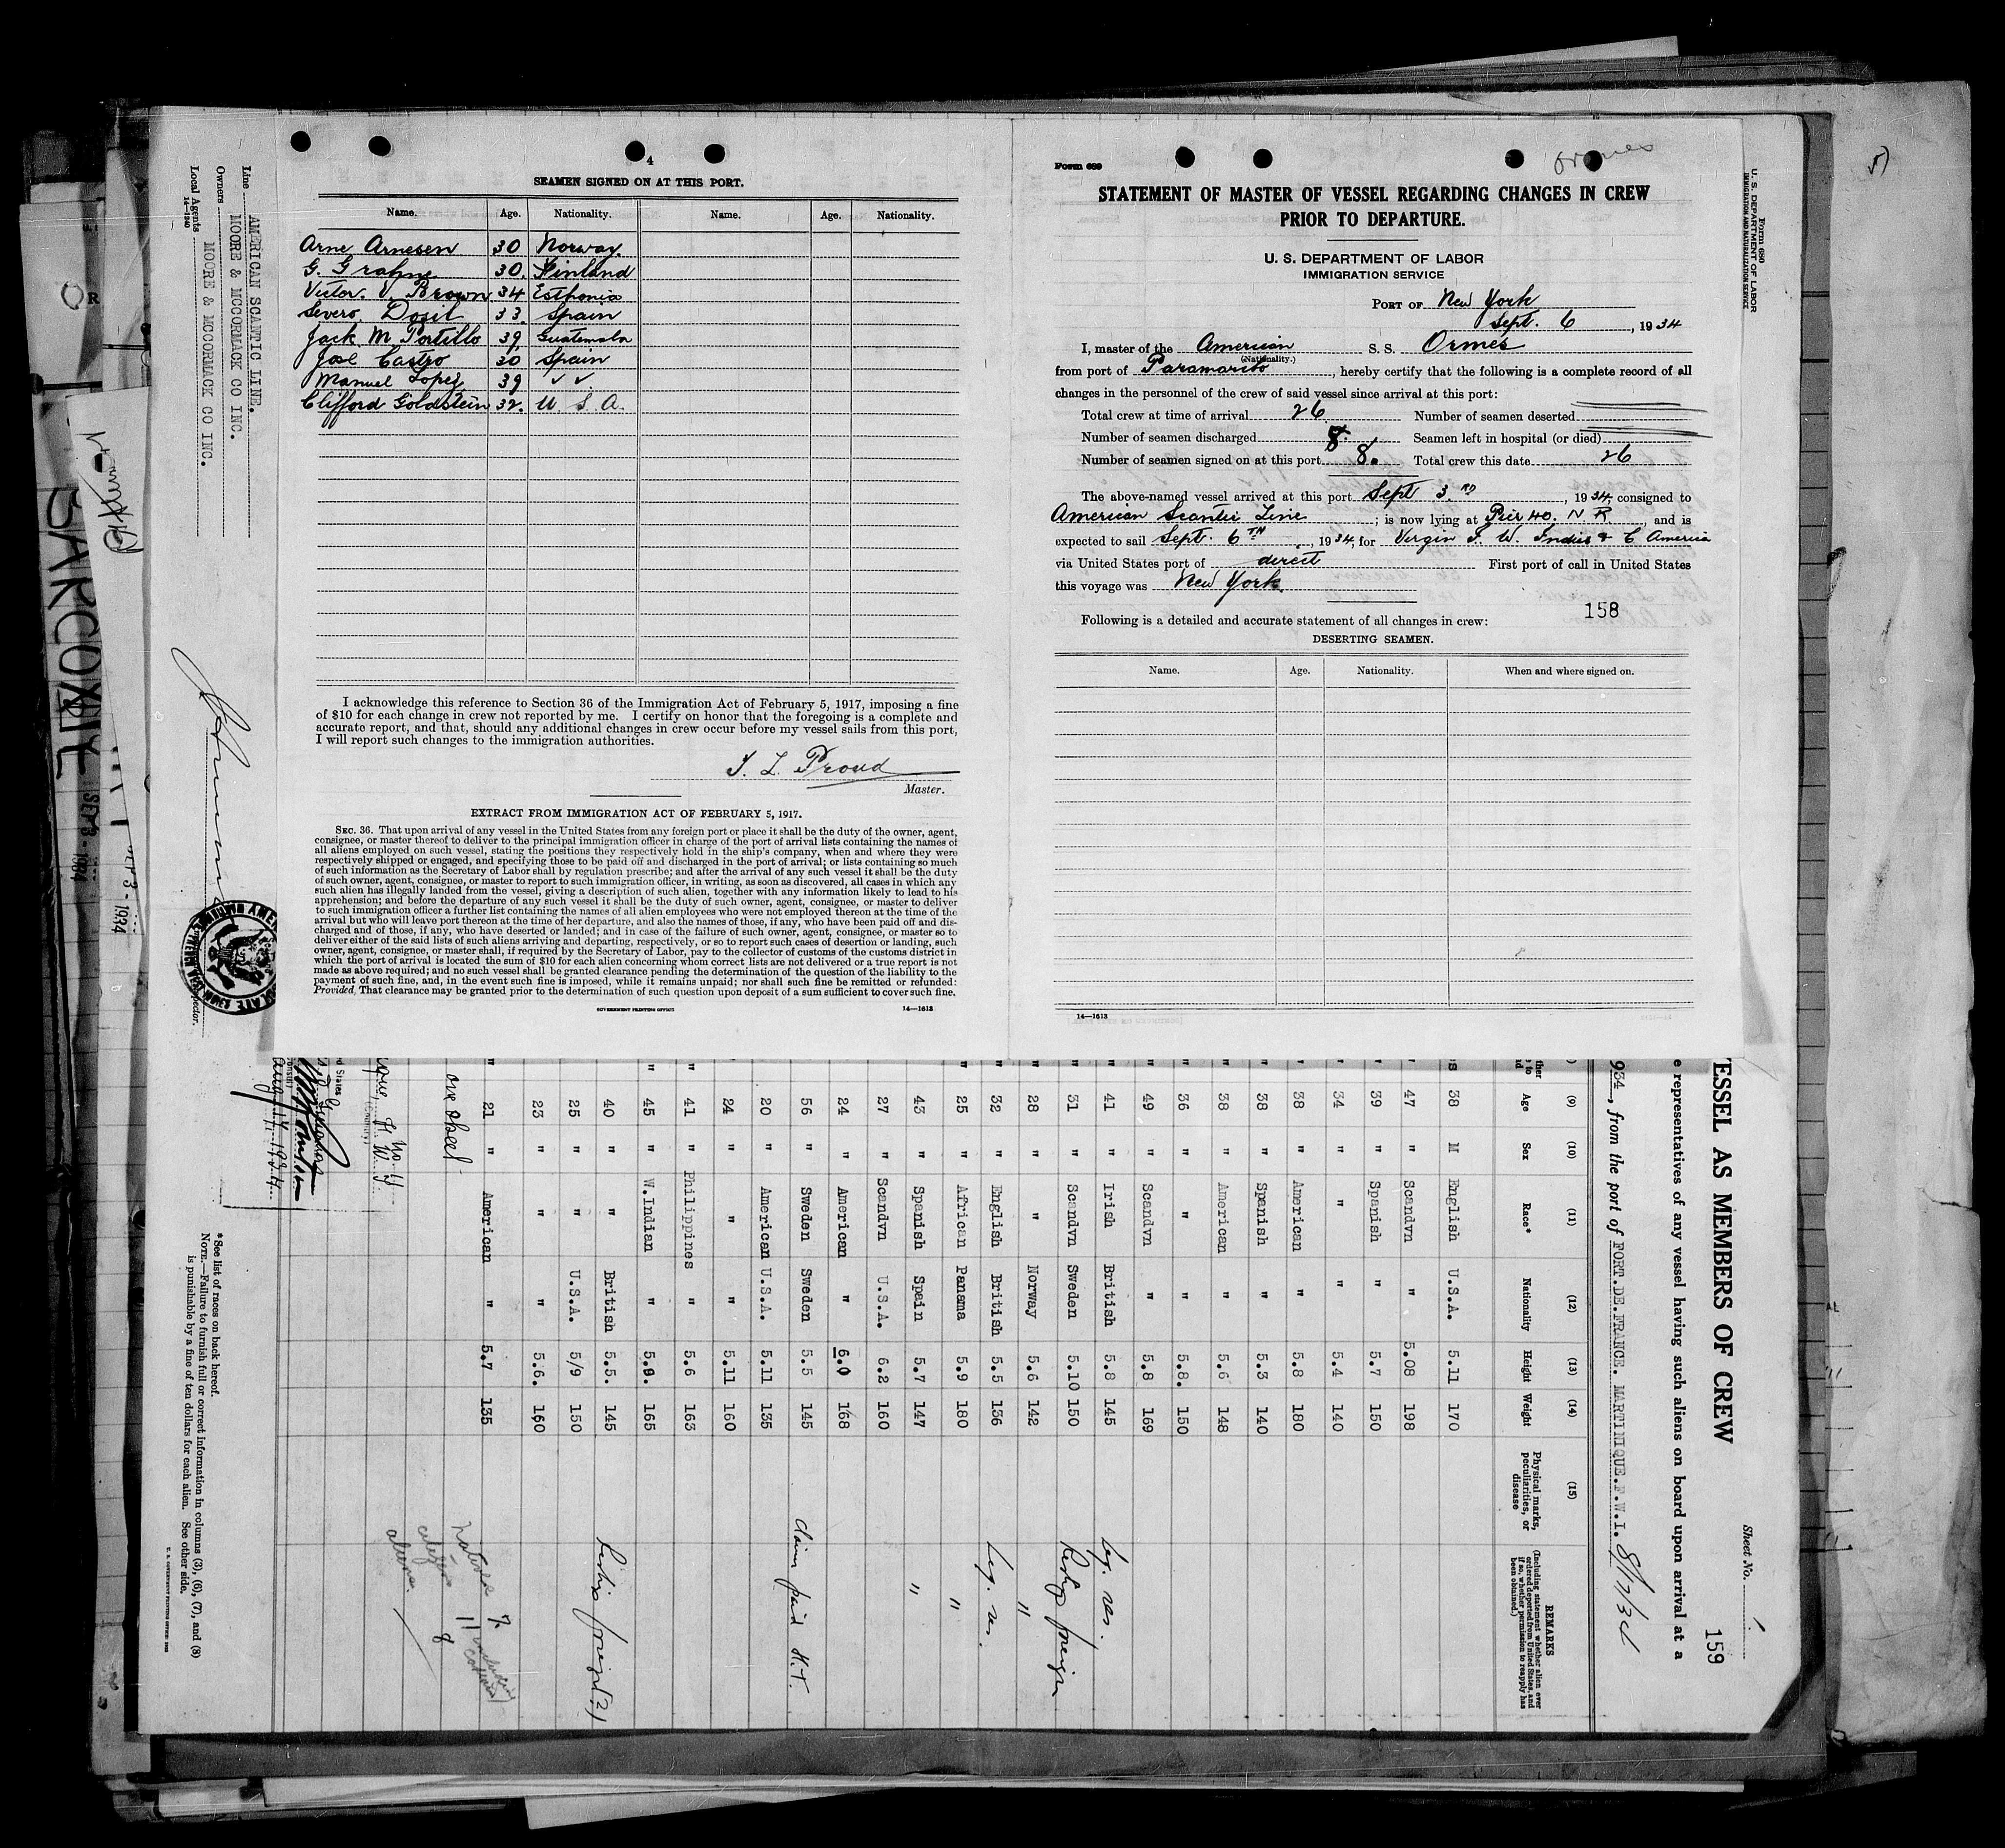 4
SEAMEN SIGNED ON AT THIS PORT.
Name. Age. Nationality. Name. Age. Nationality.
Arne Arnesen 30 Norway.
G. Grahne 30. Finland
Victor. V. Brown 34 Esthonia
Severo. Dosil 33. Spain
Jack M Portillo 39 Guatemala
Jose Castro 30 Spain
Manuel Lopez 39 ✓ ✓.
Clifford Goldstein 32. U. S. A.
I acknowledge this reference to Section 36 of the Immigration Act of February 5, 1917, imposing a fine
of $10 for each change in crew not reported by me. I certify on honor that the foregoing is a complete and
accurate report, and that, should any additional changes in crew occur before my vessel sails from this port,
I will report such changes to the immigration authorities.
L. Proud
Master.
EXTRACT FROM IMMIGRATION ACT OF FEBRUARY 5, 1917.
SEC. 36. That upon arrival of any vessel in the United States from any foreign port or place it shall be the duty of the owner, agent,
consignee, or master thereof to deliver to the principal immigration officer in charge of the port of arrival lists containing the names of
all aliens employed on such vessel, stating the positions they respectively hold in the ship's company, when and where they were
respectively shipped or engaged, and specifying those to be paid off and discharged in the port of arrival; or lists containing so much
of such information as the Secretary of Labor shall by regulation prescribe; and after the arrival of any such vessel it shall be the duty
of such owner, agent, consignee, or master to report to such immigration officer, in writing, as soon as discovered, all cases in which any
such alien has illegally landed from the vessel, giving a description of such alien, together with any information likely to lead to his
apprehension; and before the departure of any such vessel it shall be the duty of such owner, agent, consignee, or master to deliver
to such immigration officer a further list containing the names of all alien employees who were not employed thereon at the time of the
arrival but who will leave port thereon at the time of her departure, and also the names of those, if any, who have been paid off and dis-
charged and of those, if any, who have deserted or landed; and in case of the failure of such owner, agent, consignee, or master so to
deliver either of the said lists of such aliens arriving and departing, respectively, or so to report such cases of desertion or landing, such
owner, agent, consignee, or master shall, if required by the Secretary of Labor, pay to the collector of customs of the customs district in
which the port of arrival is located the sum of $10 for each alien concerning whom correct lists are not delivered or a true report is not
made as above required; and no such vessel shall be granted clearance pending the determination of the question of the liability to the
payment of such fine, and, in the event such fine is imposed, while it remains unpaid; nor shall such fine be remitted or refunded:
Provided, That clearance may be granted prior to the determination of such question upon deposit of a sum sufficient to cover such fine.
GOVERNMENT PRINTING OFFICE 14—1613
Form 689 Ormes
STATEMENT OF MASTER OF VESSEL REGARDING CHANGES IN CREW
PRIOR TO DEPARTURE.
U. S. DEPARTMENT OF LABOR
IMMIGRATION SERVICE
PORT OF New York
Sept. 6, 1934
I, master of the American S. S. Ormes
(Nationality.)
from port of Paramaribo, hereby certify that the following is a complete record of all
changes in the personnel of the crew of said vessel since arrival at this port:
Total crew at time of arrival 26 Number of seamen deserted
Number of seamen discharged 8. Seamen left in hospital (or died)
Number of seamen signed on at this port 8. Total crew this date 26
The above-named vessel arrived at this port Sept 3. RD, 1934, consigned to
American Scantic Line; is now lying at Pier 40. N R, and is
expected to sail Sept. 6TH, 1934, for Virgin I. W. Indies & C America
via United States port of direct First port of call in United States
this voyage was New York.
158
Following is a detailed and accurate statement of all changes in crew:
DESERTING SEAMEN.
Name. Age. Nationality. When and where signed on.
14—1613
Form 680
U. S. DEPARTMENT OF LABOR
IMMIGRATION AND NATURALIZATION SERVICE
Line AMERICAN SCANTIC LINE.
Owners MOORE & MCCORMACK CO INC.
Local Agents MOORE & MCCORMACK CO INC.
14—1240
SARCOXIE
SEP 3 - 1934
SEP 3 - 1934
ESSEL AS MEMBERS OF CREW
Sheet No.
159
e representatives of any vessel having such aliens on board upon arrival at a
934, from the port of FORT.DE.FRANCE. MARTINIQUE.F.W.I. 8/17/34
(9) (10) (11) (12) (13) (14) (15)
Age Sex Race* Nationality Height Weight Physical marks, peculiarities, or disease REMARKS
(Including statement whether alien ever ordered deported from United States, and if so, whether permission to reapply has been obtained.)
38 M English U.S.A. 5.11 170
47 " Scandvn " 5.08 198
39 " Spanish " 5.7 150
34 " " " 5.4 140
38 " American " 5.8 180
38 " Spanish " 5.3 140
38 " American " 5.6 148
36 " " " 5.8. 150
49 " Scandvn " 5.8 169
41 " Irish British 5.8 145 leg. res.
31 " Scandvn Sweden 5.10 150 Reship foreign
28 " " Norway 5.6 142 "
32 " English British 5.5 136 leg. res.
25 " African Panama 5.9 180 "
43 " Spanish Spain 5.7 147 "
27 " Scandvn U.S.A. 6.2 160
24 " American " 6.0 168
56 " Sweden Sweden 5.5 145 claim paid H.T.
20 " American U.S.A. 5.11 135
24 " " " 5.11 160
41 " Philippines " 5.6 163
45 " W.Indian " 5.9. 165
40 " " British 5.5. 145 Reship foreign(?)
25 " " U.S.A. 5/9 150
23 " " " 5.6. 160
21 " American " 5.7 135
one sheet
natives 7
citizens 11
aliens. 8
Aug. 17. 1934
*See list of races on back hereof.
NOTE.—Failure to furnish full or correct information in columns (3), (6), (7), and (8)
is punishable by a fine of ten dollars for each alien. See other side.